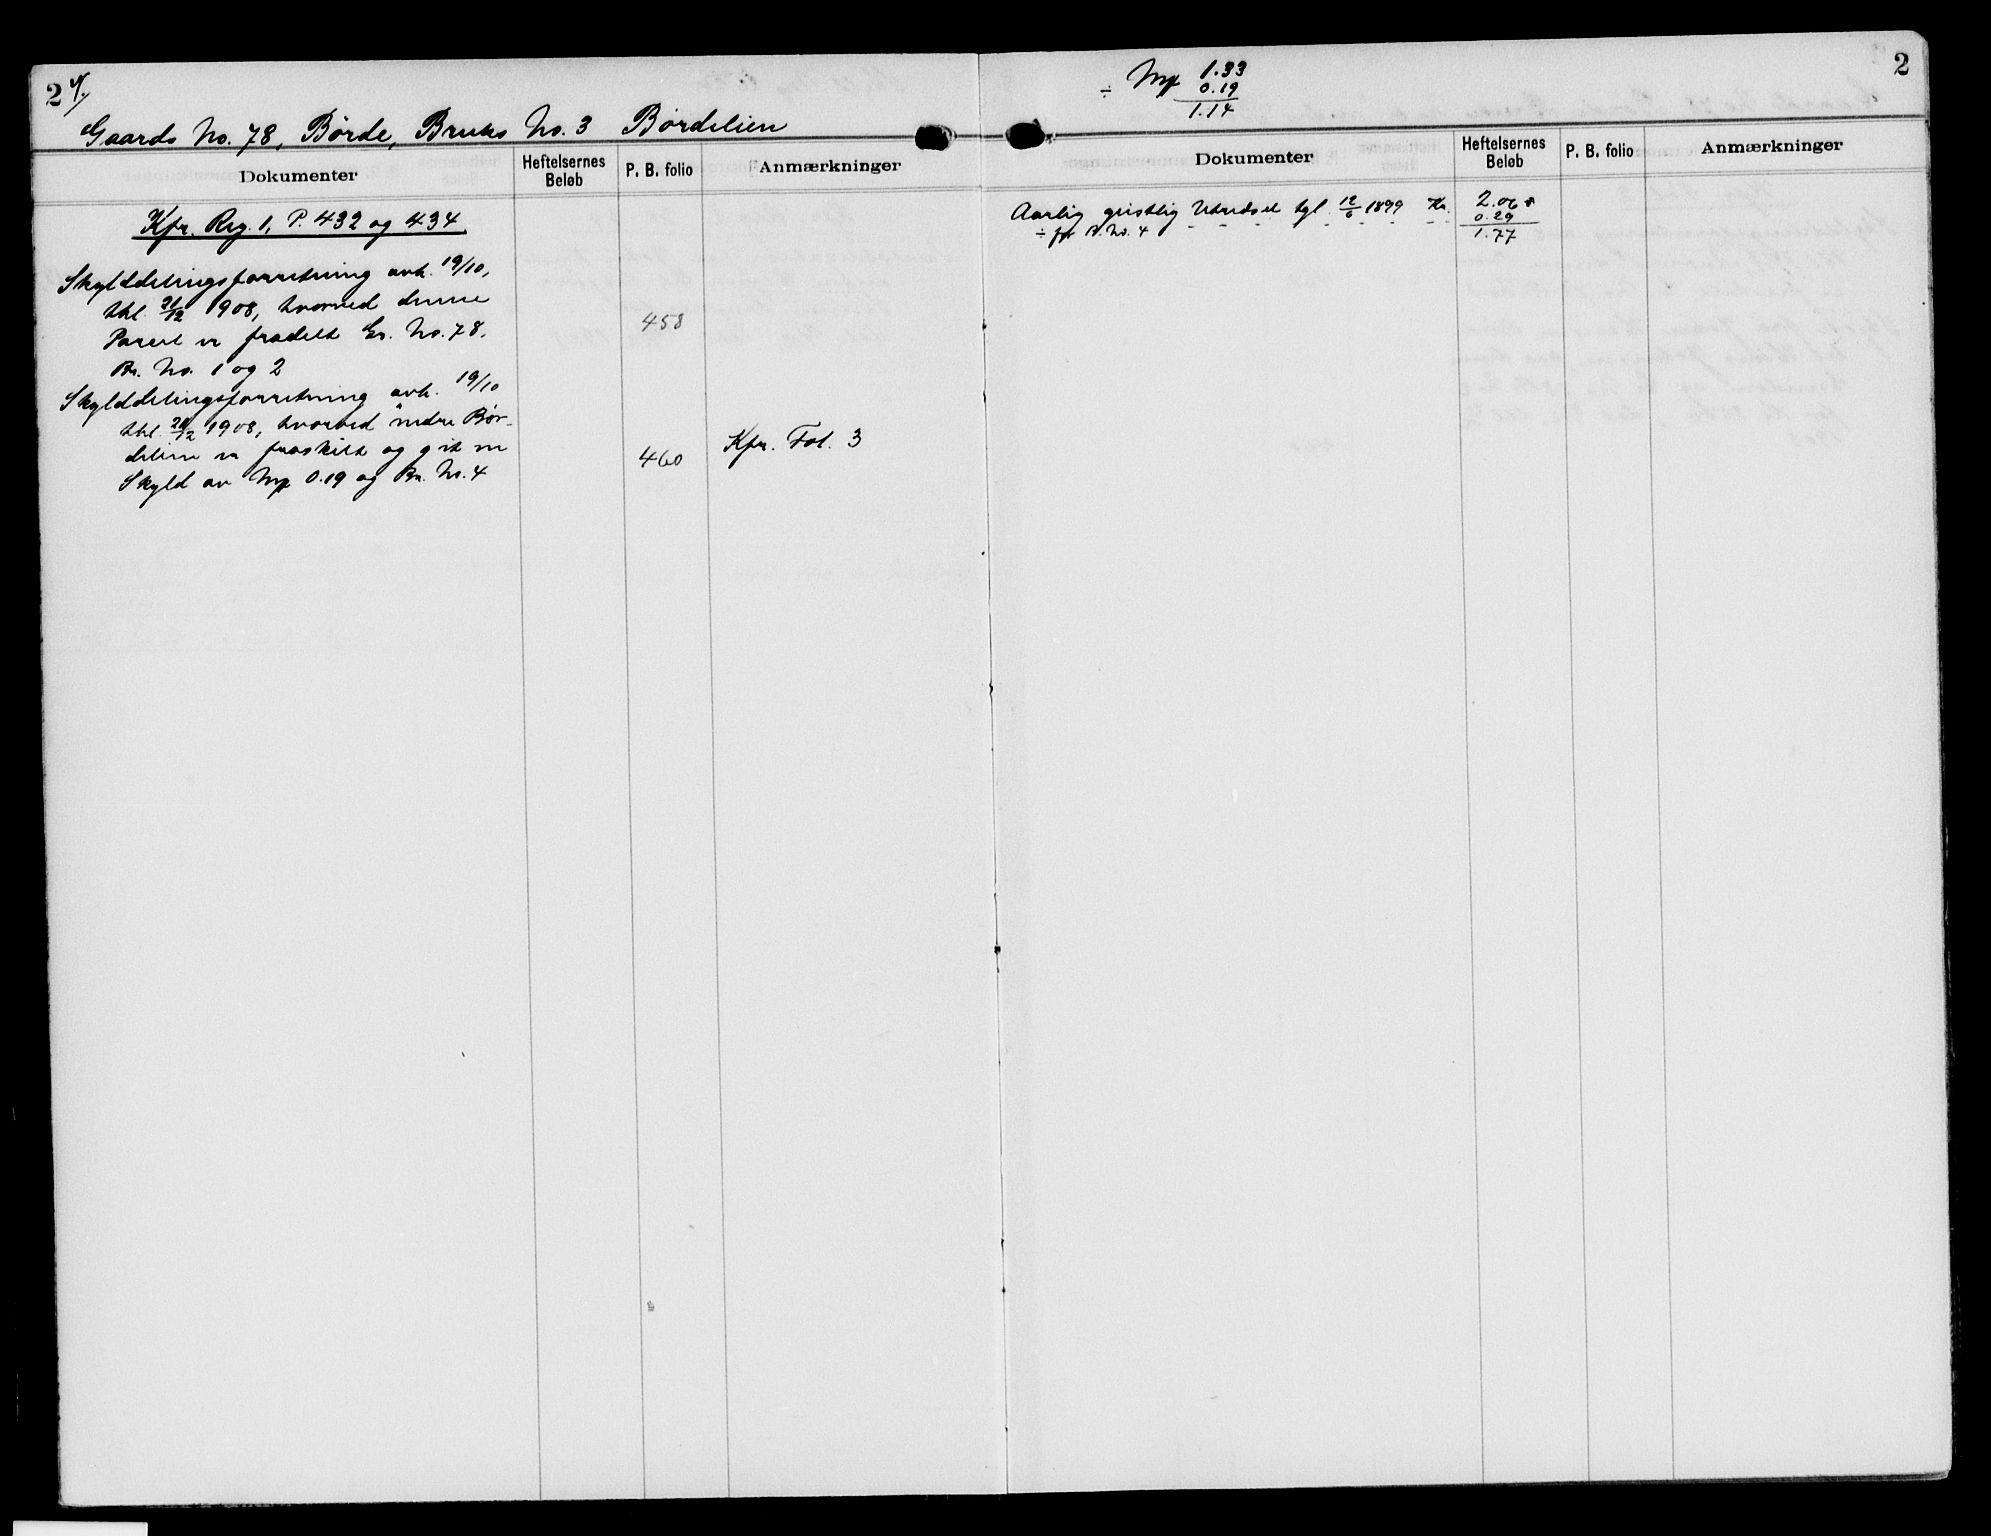 2
Gaards No. 78, Børde, Bruks No. 3 Bördelien
Dokumenter
Heftelsernes Beløb
P. B. folio
Anmærkninger
Kfr. Reg. 1, P. 432 og 434
Skylddelingsforretning avh. 19/10,
thl. 21/12 1908, hvorved denne
Parcel er fradelt Gr. No. 78.
Br. No. 1 og 2
458
Skylddelingsforretning avh. 19/10
thl. 21/12 1908, hvorved nedre Bör-
delien er fraskilt og git en
Skyld av Mp 0.19 og Br. No. 4
460
Kfr. Fol. 3
2
Mp 1.33
÷ 0.19
1.14
Dokumenter
Heftelsernes Beløb
P. B. folio
Anmærkninger
Aarlig geistlig Utredsel tgl. 12/6 1899 Kr. 2.06
÷ for B. No. 4 - - - - - - - 0.29
1.77